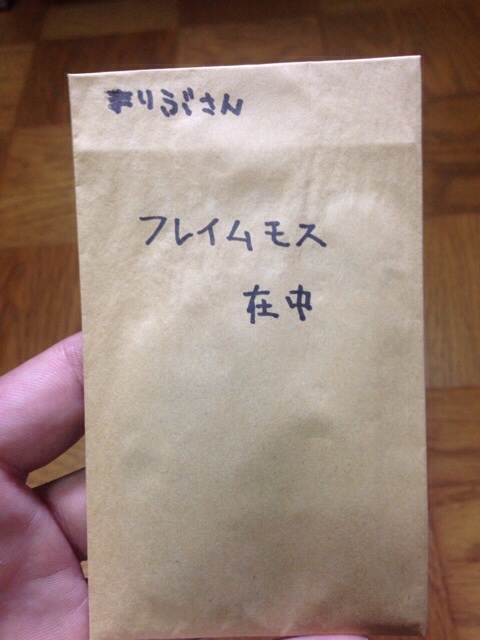 まりうださん
フレイムモス
在中